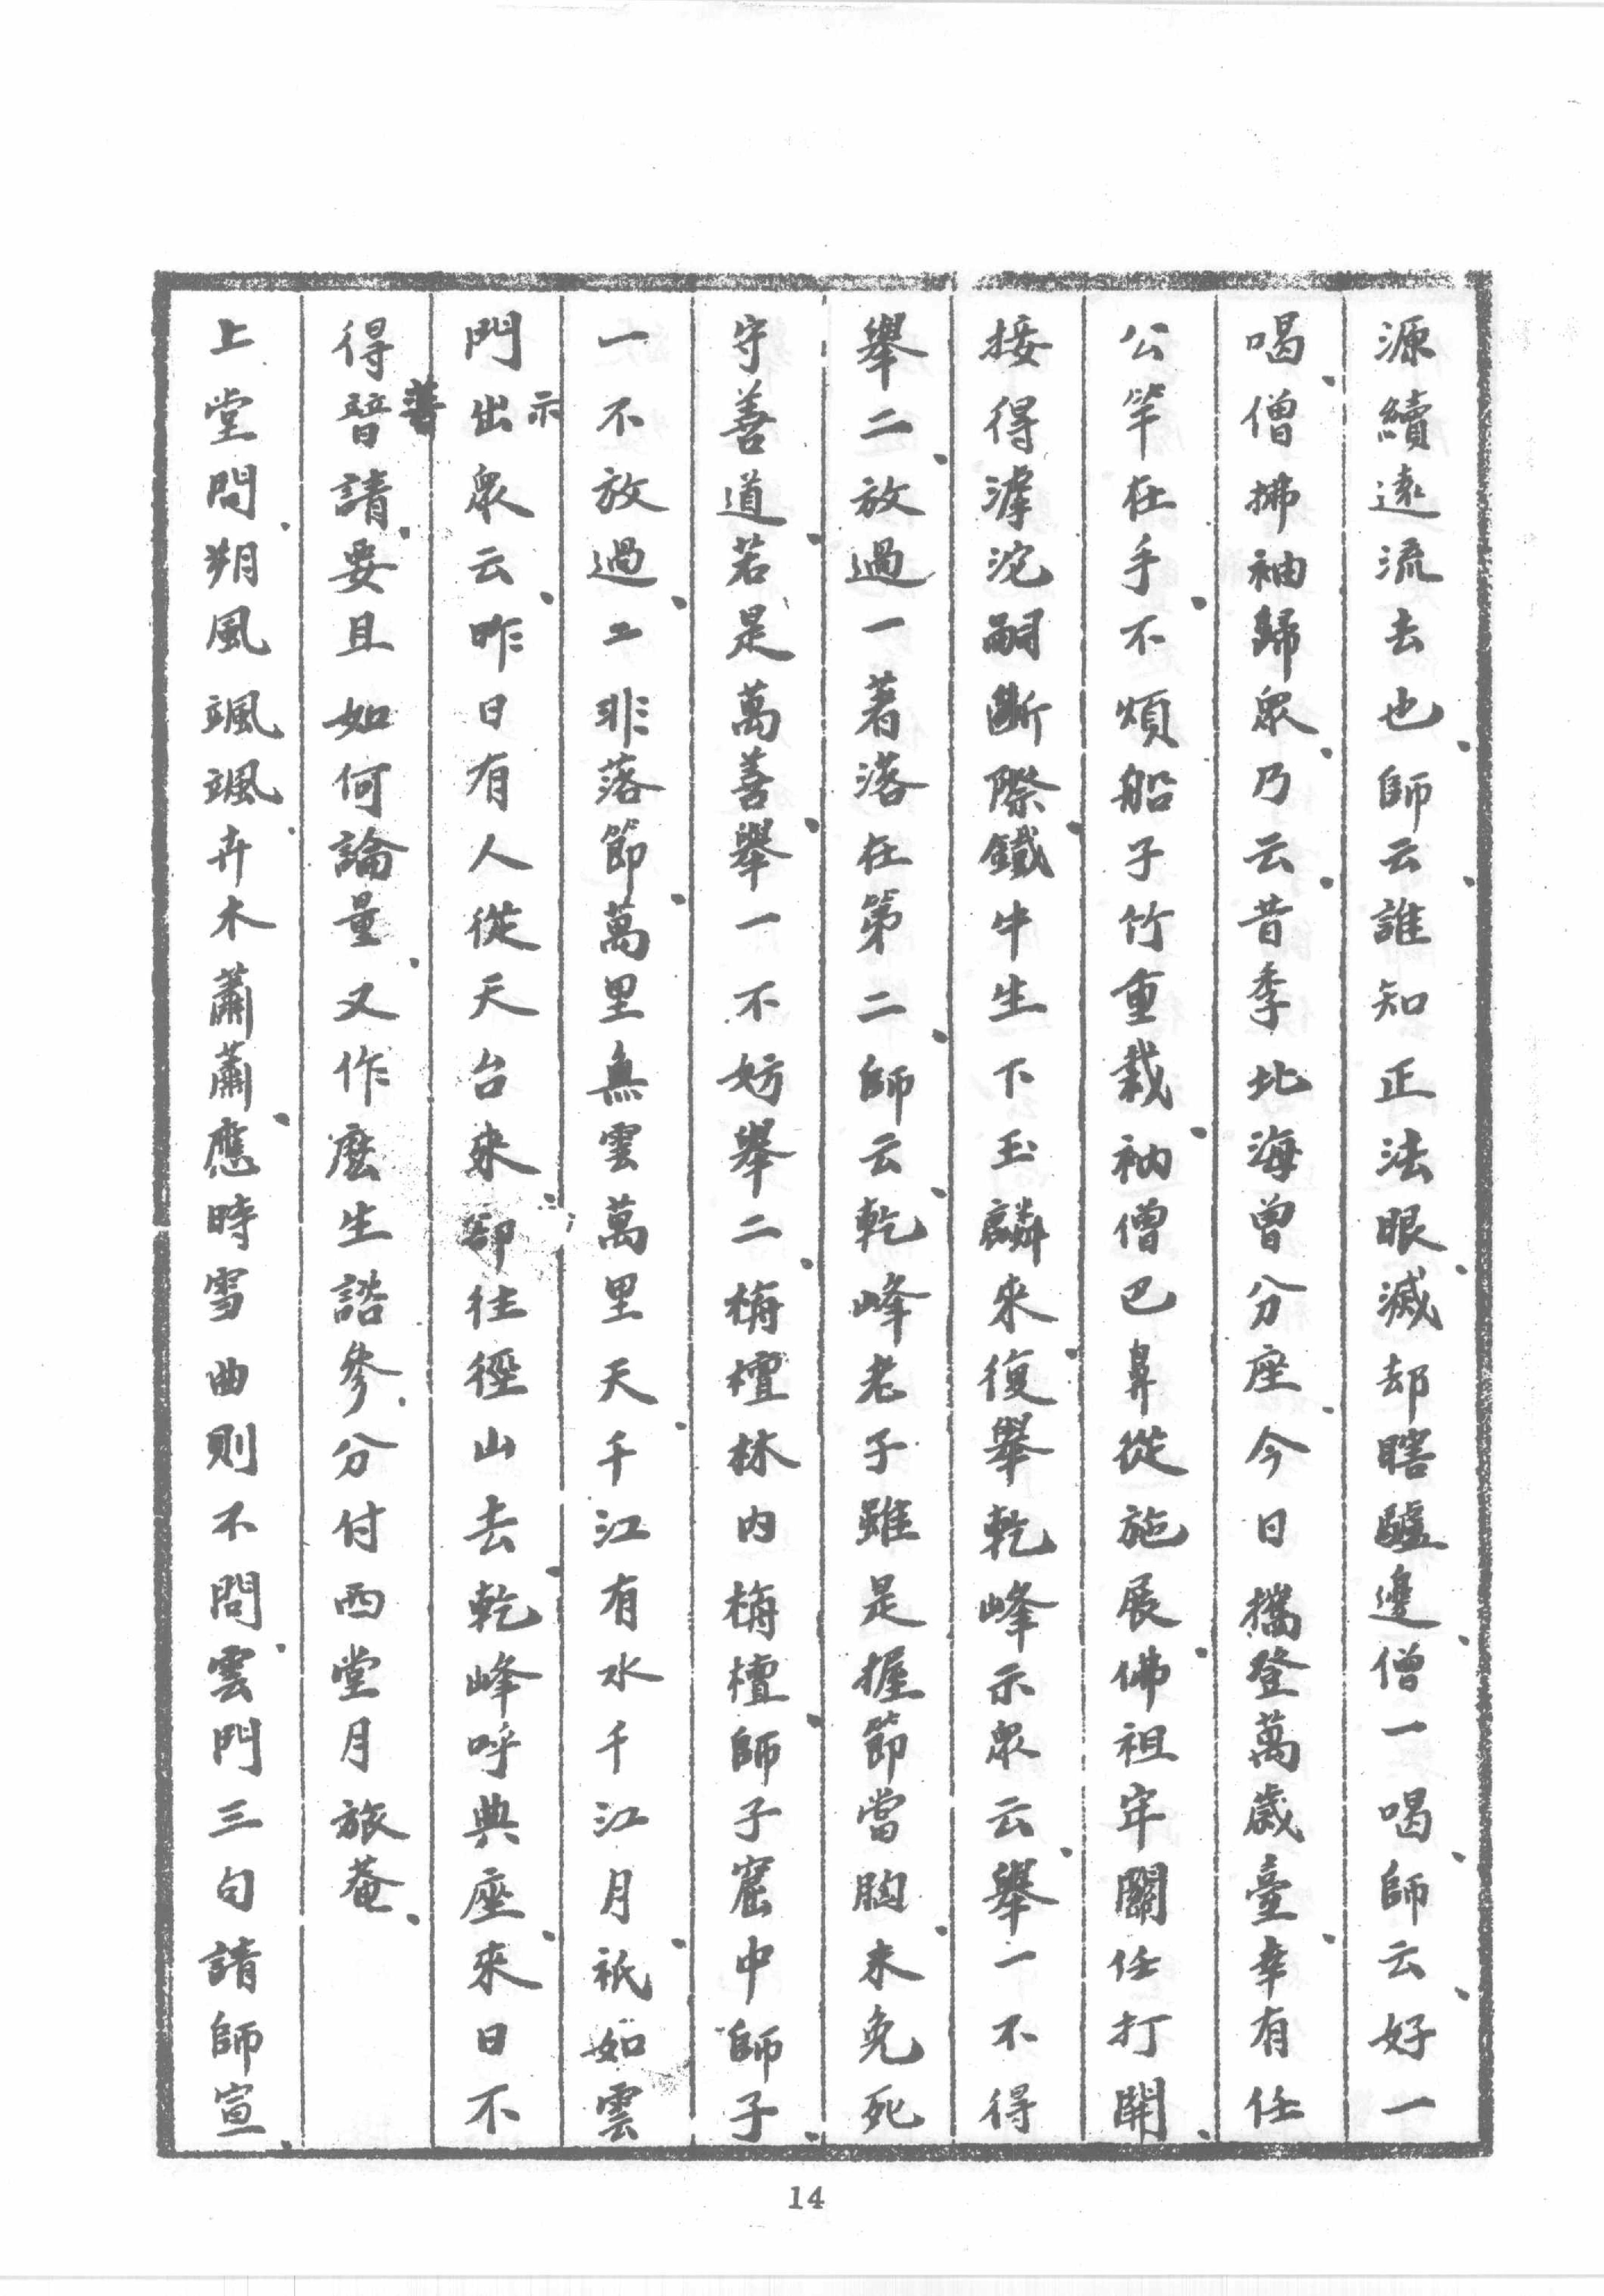 源續遠流去也師云誰知正法眼滅却瞎驢邊僧一喝師云好一
喝僧拂袖歸衆乃云昔季北海曾分座今日攜登萬歲臺幸有任
公竿在手不煩船子竹重栽衲僧巴鼻從施展佛祖牢關任打開
接得滹沱嗣斷際鐵牛生下玉麟來復舉乾峰示衆云舉一不得
舉二放過一著落在第二師云乾峰老子雖是握節當胸未免死
守善道若是萬善舉一不妨舉二栴檀林内栴檀師子窟中師子
一不放過二非落節萬里無雲萬里天千江有水千江月祇如雲
門出衆云昨日有人從天台來郤往徑山去乾峰呼典座來日不
示
得暜請要且如何論量又作麼生諮參分付西堂月旅菴
普
上堂問朔風颯颯卉木蕭蕭應時雪曲則不問雲門三句請師宣
14